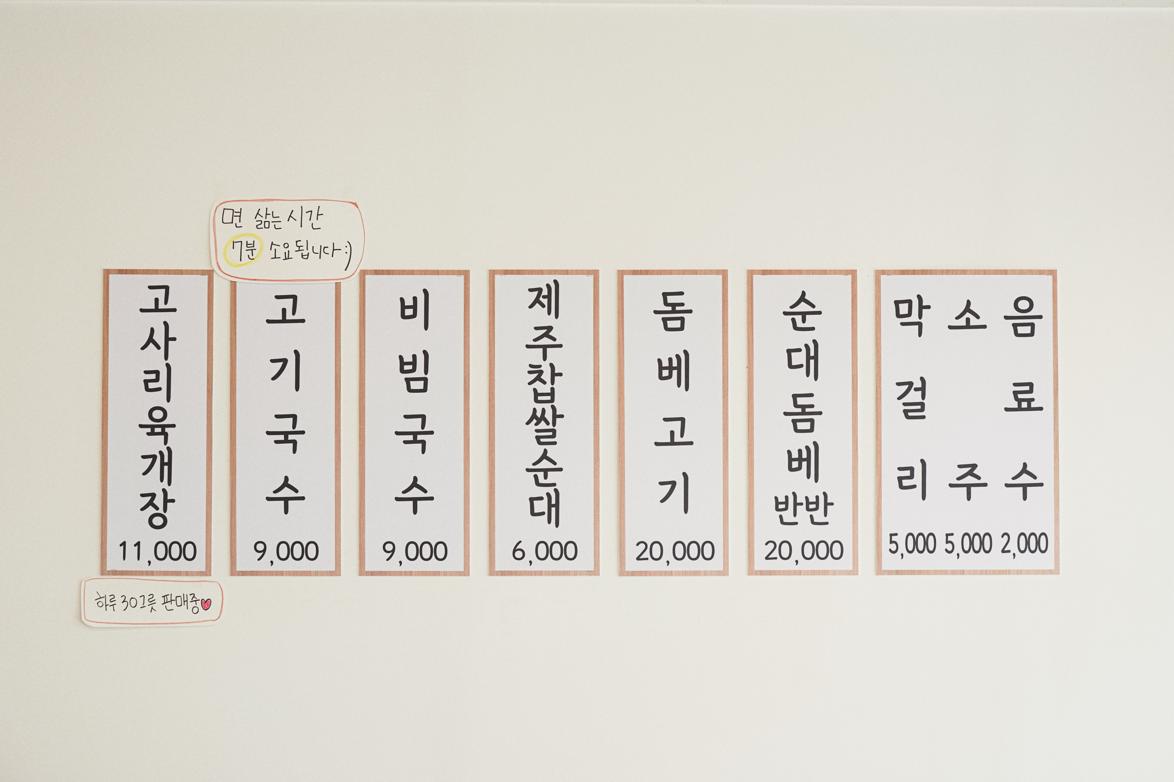 면 삶는 시간
7분 소요됩니다 :)
고사리육개장
11,000
고기국수
9,000
비빔국수
9,000
제주찹쌀순대
6,000
돔베고기
20,000
순대돔베반반
20,000
막걸리
5,000
소주
5,000
음료수
2,000
하루 30그릇 판매중